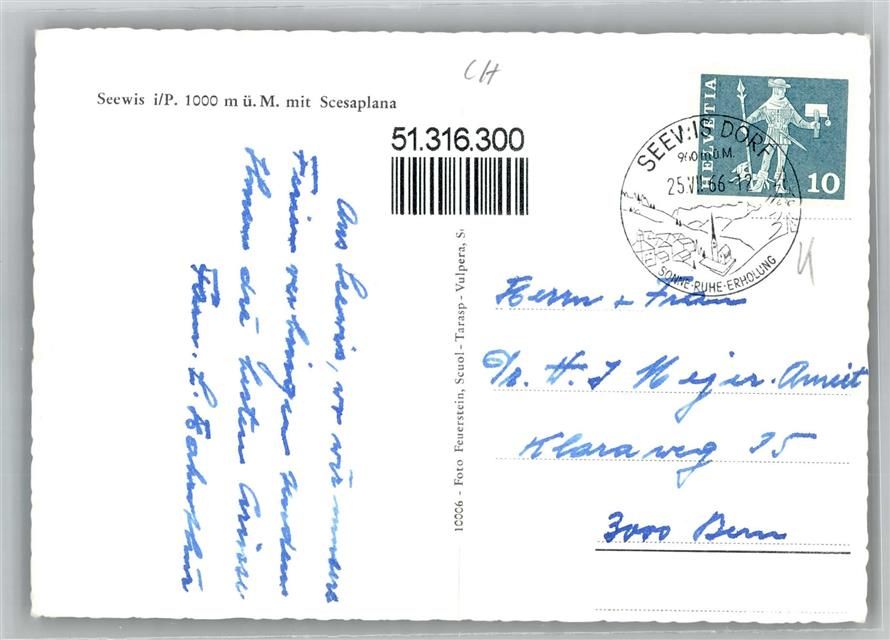 Seewis i/P. 1000 m ü. M. mit Scesaplana
CH
51.316.300
HELVETIA
10
SEEWIS DORF
960 m ü.M.
25.VII.66-12
SONNE·RUHE·ERHOLUNG
Aus Seewis, wo wir unsere
Ferien verbringen senden
Ihnen die besten Grüsse.
Fam.
10006 - Foto Feuerstein, Scuol-Tarasp - Vulpera, S
Herrn + Frau
Dr. H. J Meyer-
Klaraweg 25
3000 Bern